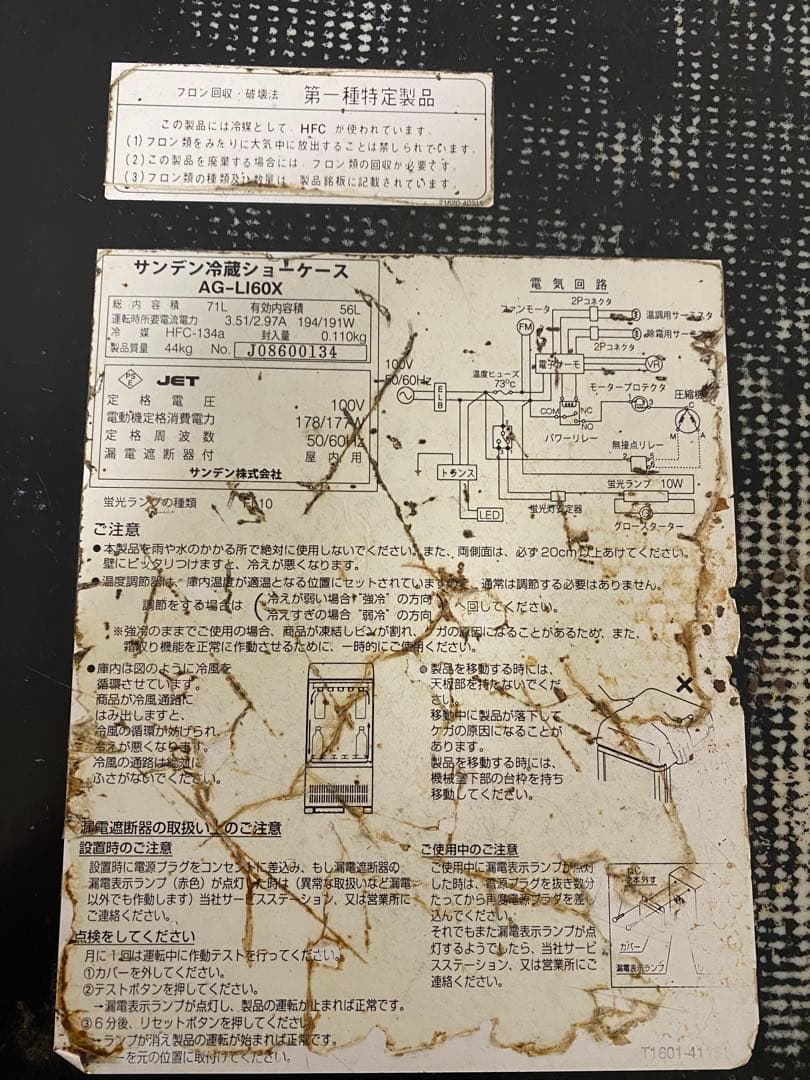 フロン回収・破壊法 第一種特定製品
この製品には冷媒として、HFC が使われています。
(1)フロン類をみだりに大気中に放出することは禁じられています。
(2)この製品を廃棄する場合には、フロン類の回収が必要です。
(3)フロン類の種類及び数量は、製品銘板に記載されています。
サンデン冷蔵ショーケース
AG-LI60X
総内容積 71L 有効内容積 56L
運転時所要電流電力 3.51/2.97A 194/191W
冷媒 HFC-134a 封入量 0.110kg
製品質量 44kg No. J08600134
PSE JET
定格電圧 100V
電動機定格消費電力 178/177W
定格周波数 50/60Hz
漏電遮断器付 屋内用
サンデン株式会社
蛍光ランプの種類 FL10
電気回路
ファンモータ
2Pコネクタ
温調用サーミスタ
FM
除霜用サーミスタ
2Pコネクタ
電子サーモ
VR
100V
50/60Hz
温度ヒューズ
73℃
ELB
モータープロテクタ
圧縮機
COM
NC
NO
パワーリレー
C
M
A
無接点リレー
トランス
LED
蛍光灯安定器
蛍光ランプ 10W
グロースターター
ご注意
●本製品を雨や水のかかる所で絶対に使用しないでください。また、両側面は、必ず20cm以上あけてください。
壁にピッタリつけますと、冷えが悪くなります。
●温度調節器は、庫内温度が適温となる位置にセットされていますので、通常は調節する必要はありません。
調節をする場合は(冷えが弱い場合“強冷”の方向
冷えすぎの場合“弱冷”の方向)へ回してください。
※強冷のままでご使用の場合、商品が凍結しビンが割れ、ケガの原因になることがあるため、また、
霜取り機能を正常に作動させるために、一時的にご使用ください。
●庫内は図のように冷風を
循環させています。
商品が冷風通路に
はみ出しますと、
冷風の循環が妨げられ、
冷えが悪くなります。
冷風の通路は絶対に
ふさがないでください。
●製品を移動する時には、
天板部を持たないでくだ
さい。
移動中に製品が落下して
ケガの原因になることが
あります。
製品を移動する時には、
機械室下部の台枠を持ち
移動してください。
漏電遮断器の取扱い上のご注意
設置時のご注意
設置時に電源プラグをコンセントに差込み、もし漏電遮断器の
漏電表示ランプ(赤色)が点灯した時は(異常な取扱いなど漏電
以外でも作動します)当社サービスステーション、又は営業所に
ご連絡ください。
点検をしてください
月に1回は運転中に作動テストを行ってください。
①カバーを外してください。
②テストボタンを押してください。
→漏電表示ランプが点灯し、製品の運転が止まれば正常です。
③6分後、リセットボタンを押してください。
→ランプが消え製品の運転が始まれば正常です。
カバーを元の位置に取付けてください。
ご使用中のご注意
ご使用中に漏電表示ランプが点灯
した時は、電源プラグを抜き数分
たってから再度電源プラグを差し
込んでください。
それでもまた漏電表示ランプが点
灯するようでしたら、当社サービ
スステーション、又は営業所にご
連絡ください。
カバー
漏電表示ランプ